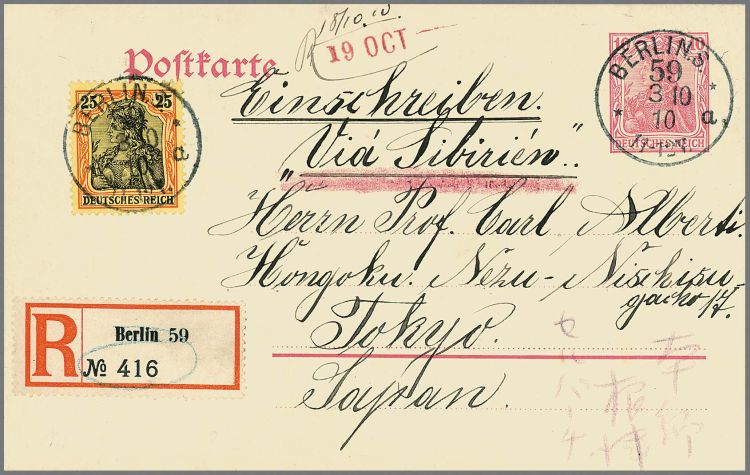 18/10.10
19 OCT
Postkarte
Einschreiben.
"Viá Sibirién".
Herrn Prof. Carl Alberti.
Hongoku. Nezu-Nischisu-
gacho 17.
Tokyo.
Japan.
25 25
DEUTSCHES REICH
BERLIN.S
a
10 10
DEUTSCHES REICH
BERLIN.S
59
3 10
10 a
R
Berlin 59
№ 416
本郷
根